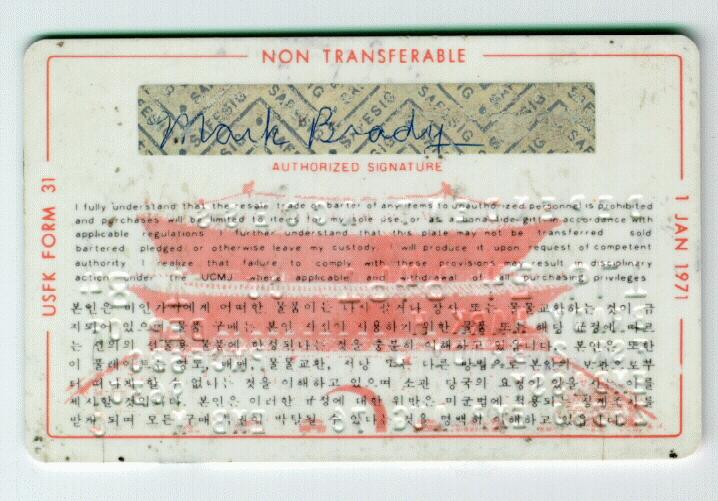 NON TRANSFERABLE
SAFESIG
Mark Brady
AUTHORIZED SIGNATURE
USFK FORM 31
1 JAN 1971
I fully understand that the resale trade or barter of any items to unauthorized personnel is prohibited
and purchases will be limited to items for my sole use or as a bona-fide gift in accordance with
applicable regulations I further understand that this plate may not be transferred sold
bartered pledged or otherwise leave my custody I will produce it upon request of competent
authority I realize that failure to comply with these provisions may result in disciplinary
action under the UCMJ where applicable and withdrawal of all purchasing privileges
본인은 비인가자에게 어떠한 물품이든 다시 팔거나 양상 또는 물물교환하는 것이 금
지되어 있으며 물품 구매는 본인 자신이 사용하기 위한 물품 또는 해당 규정에 따르
는 선의의 선물용 물품에 한정된다는 것을 충분히 이해하고 있습니다 본인은 또한
이 물품 다른 방법으로 본인의
터 떠나게 할 수 없다는 것을 이해하고 있으며 소관 당국의 요청이 있을 시
제시할 것이다 본인은 이러한 규정에 대한 위반은 미군법에 적용되는
받게 되며 모든 구매 박탈당할 수 있다는 것을 명백히 이해하고 있습니다